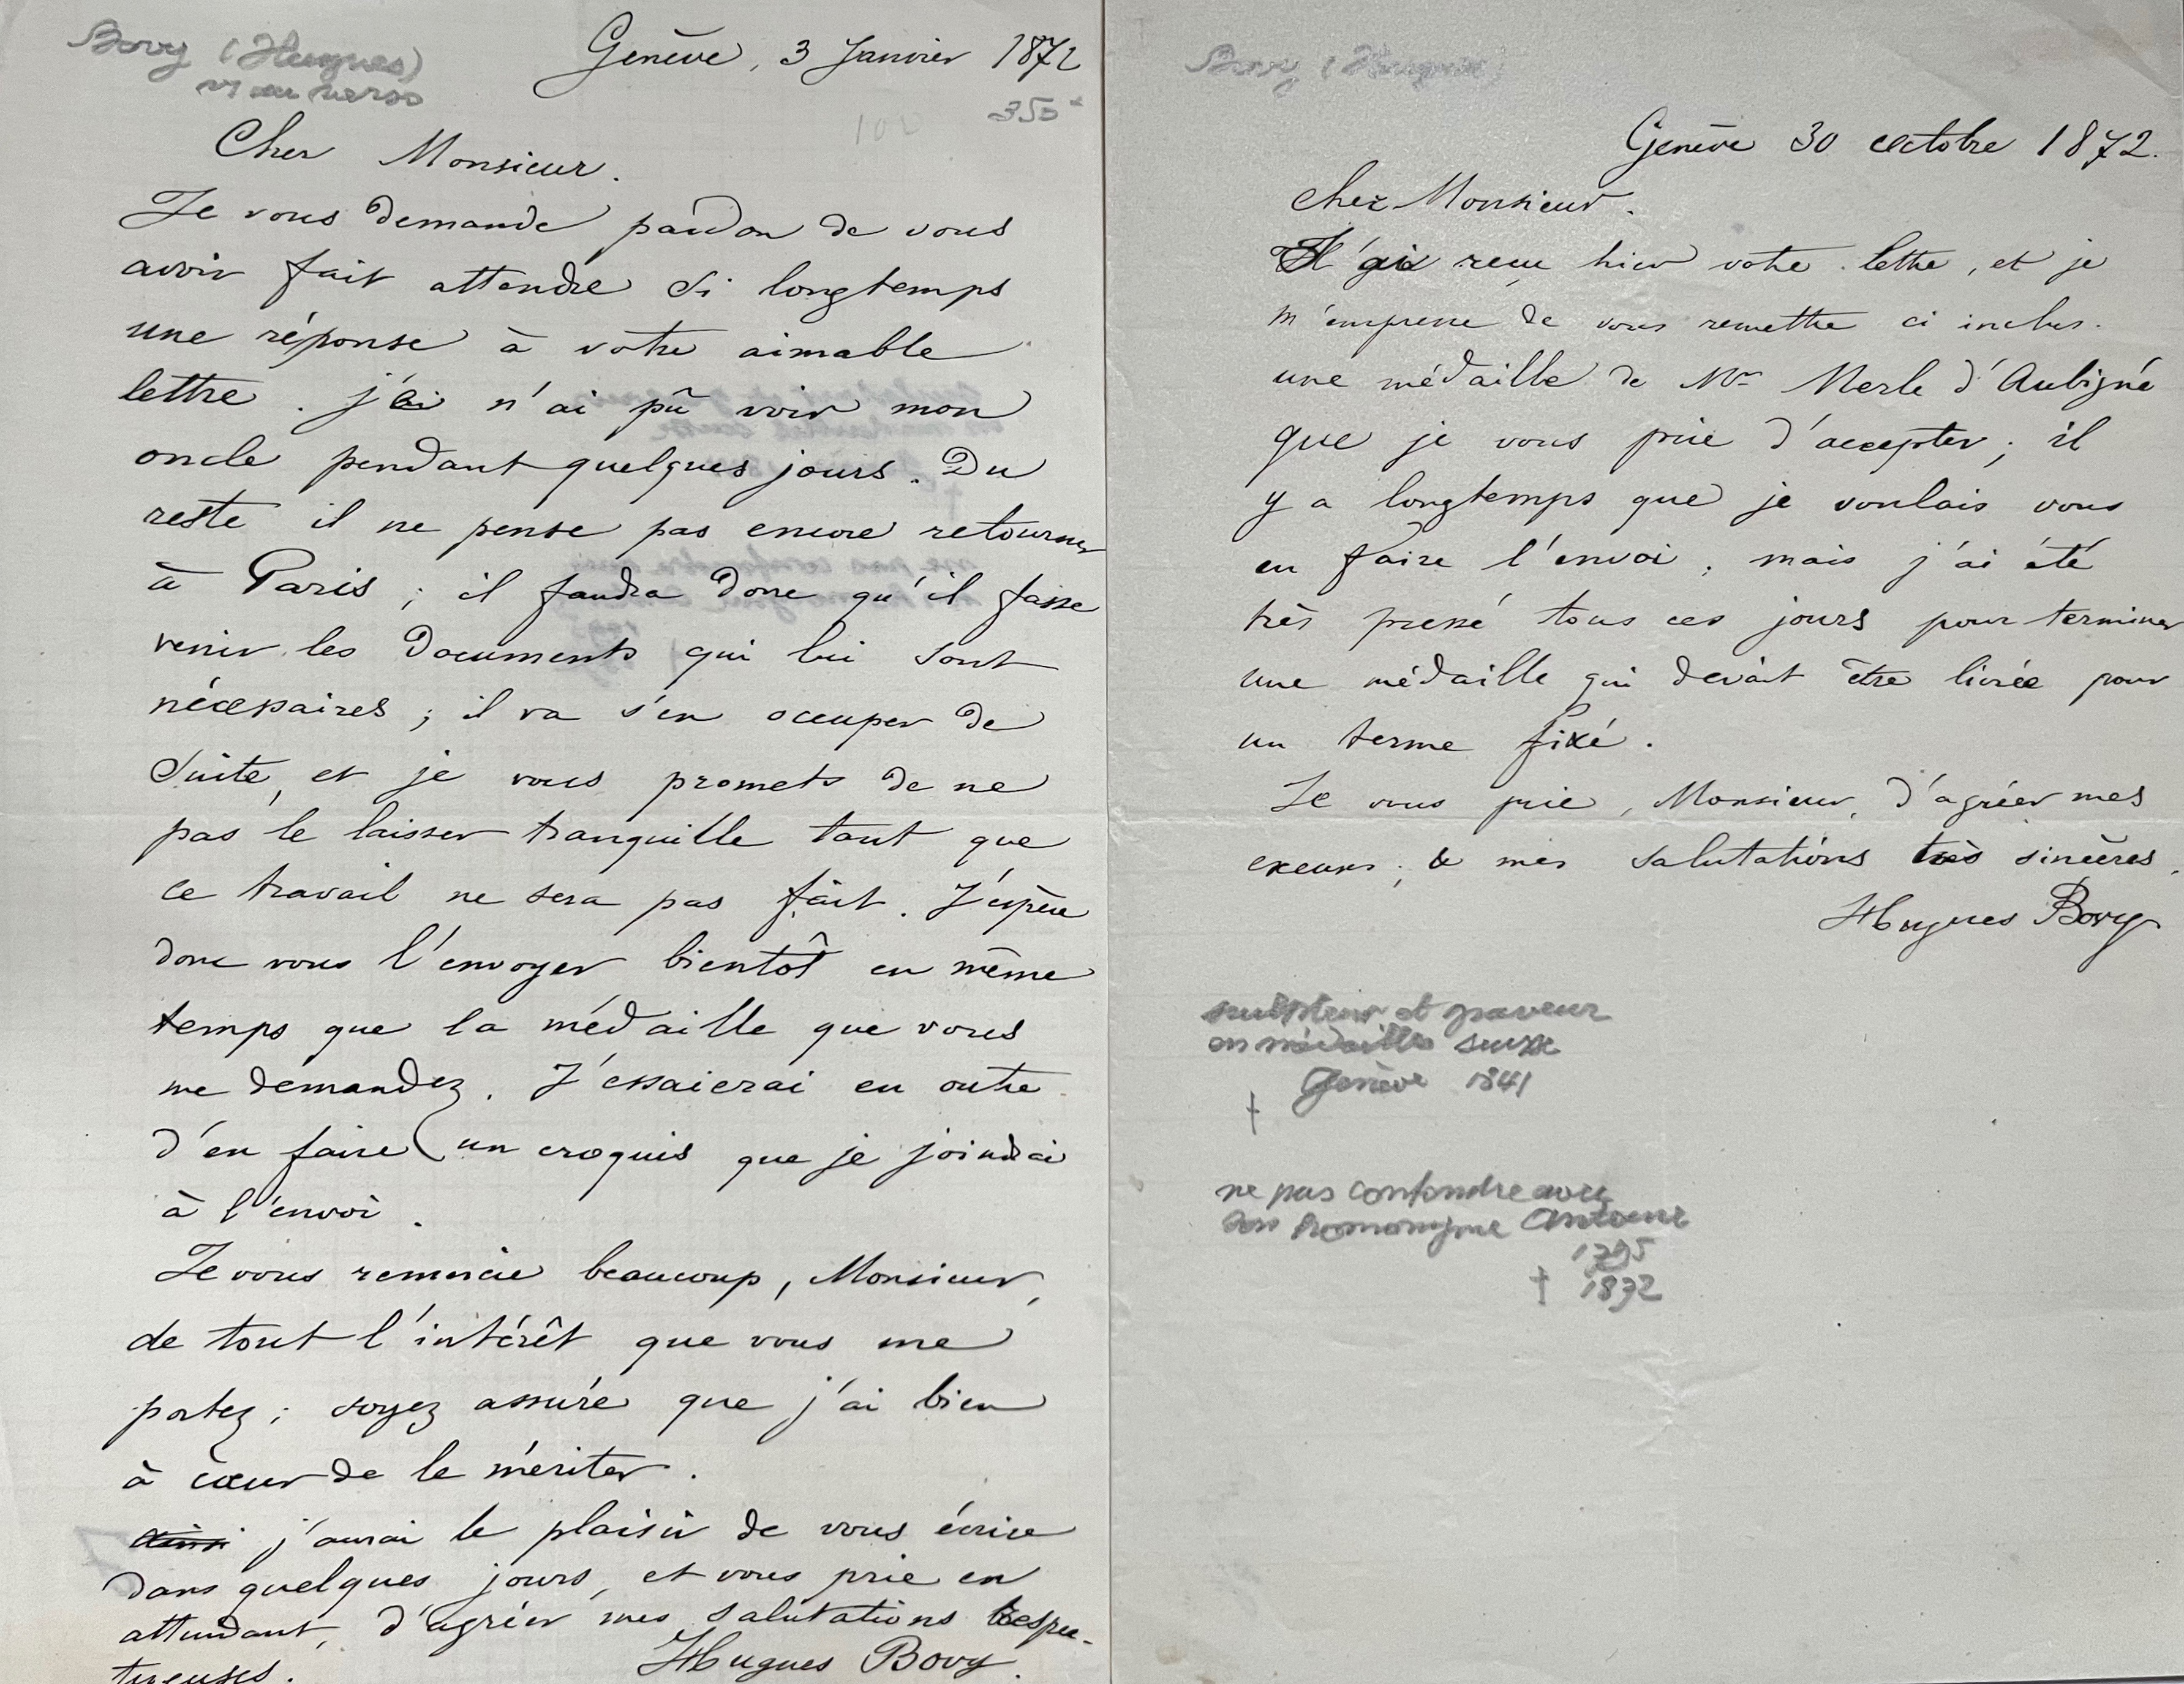 Bovy (Hugues)
vr au verso
Genève, 3 Janvier 1872
350
100
Cher Monsieur.
Je vous demande pardon de vous
avoir fait attendre si longtemps
une réponse à votre aimable
lettre. j'ai n'ai pû voir mon
oncle pendant quelques jours. Du
reste il ne pense pas encore retourner
à Paris ; il faudra donc qu'il fasse
venir les Documents qui lui sont
nécessaires ; il va s'en occuper de
suite, et je vous promets de ne
pas le laisser tranquille tant que
ce travail ne sera pas fait. J'espère
donc vous l'envoyer bientôt en même
temps que la médaille que vous
me demandez. J'essaierai en outre
d'en faire un croquis que je joindrai
à l'envoi.
Je vous remercie beaucoup, Monsieur,
de tout l'intérêt que vous me
portez ; soyez assuré que j'ai bien
à cœur de le mériter.
ainsi j'aurai le plaisir de vous écrire
dans quelques jours, et vous prie en
attendant, d'agréer mes salutations respec-
tueuses.
Hugues Bovy.
Bovy (Hugues)
Genève 30 octobre 1872.
cher Monsieur.
J'ai reçu hier votre lettre, et je
m'empresse de vous remettre ci inclus.
une médaille de Mr Merle d'Aubigné
que je vous prie d'accepter ; il
y a longtemps que je voulais vous
en faire l'envoi ; mais j'ai été
très pressé tous ces jours pour terminer
une médaille qui devait être livrée pour
un terme fixé.
Je vous prie, Monsieur, d'agréer mes
excuses, & mes salutations très sincères.
Hugues Bovy
sculpteur et graveur
en médailles suisse
Genève 1841
†
ne pas confondre avec
son homonyme Antoine
1795
† 1872